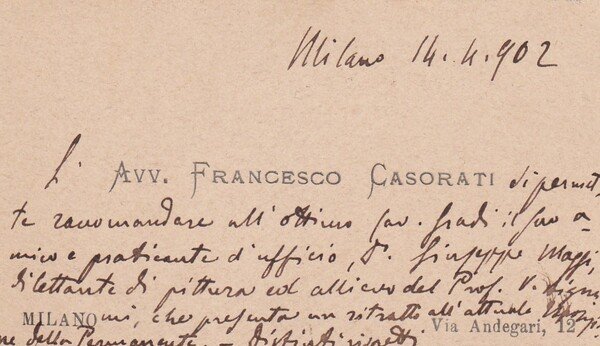 Milano 14.4.902
L' AVV. FRANCESCO CASORATI si permet
te raccomandare all'ottimo Cav. Gradi il suo a-
mico e praticante d'ufficio, Giuseppe Maggi,
dilettante di pittura ed allievo del Prof. V.
MILANO che presenta un ritratto all'attuale Espozi
Via Andegari, 12
ne della Permanente. - Distinti rispetti